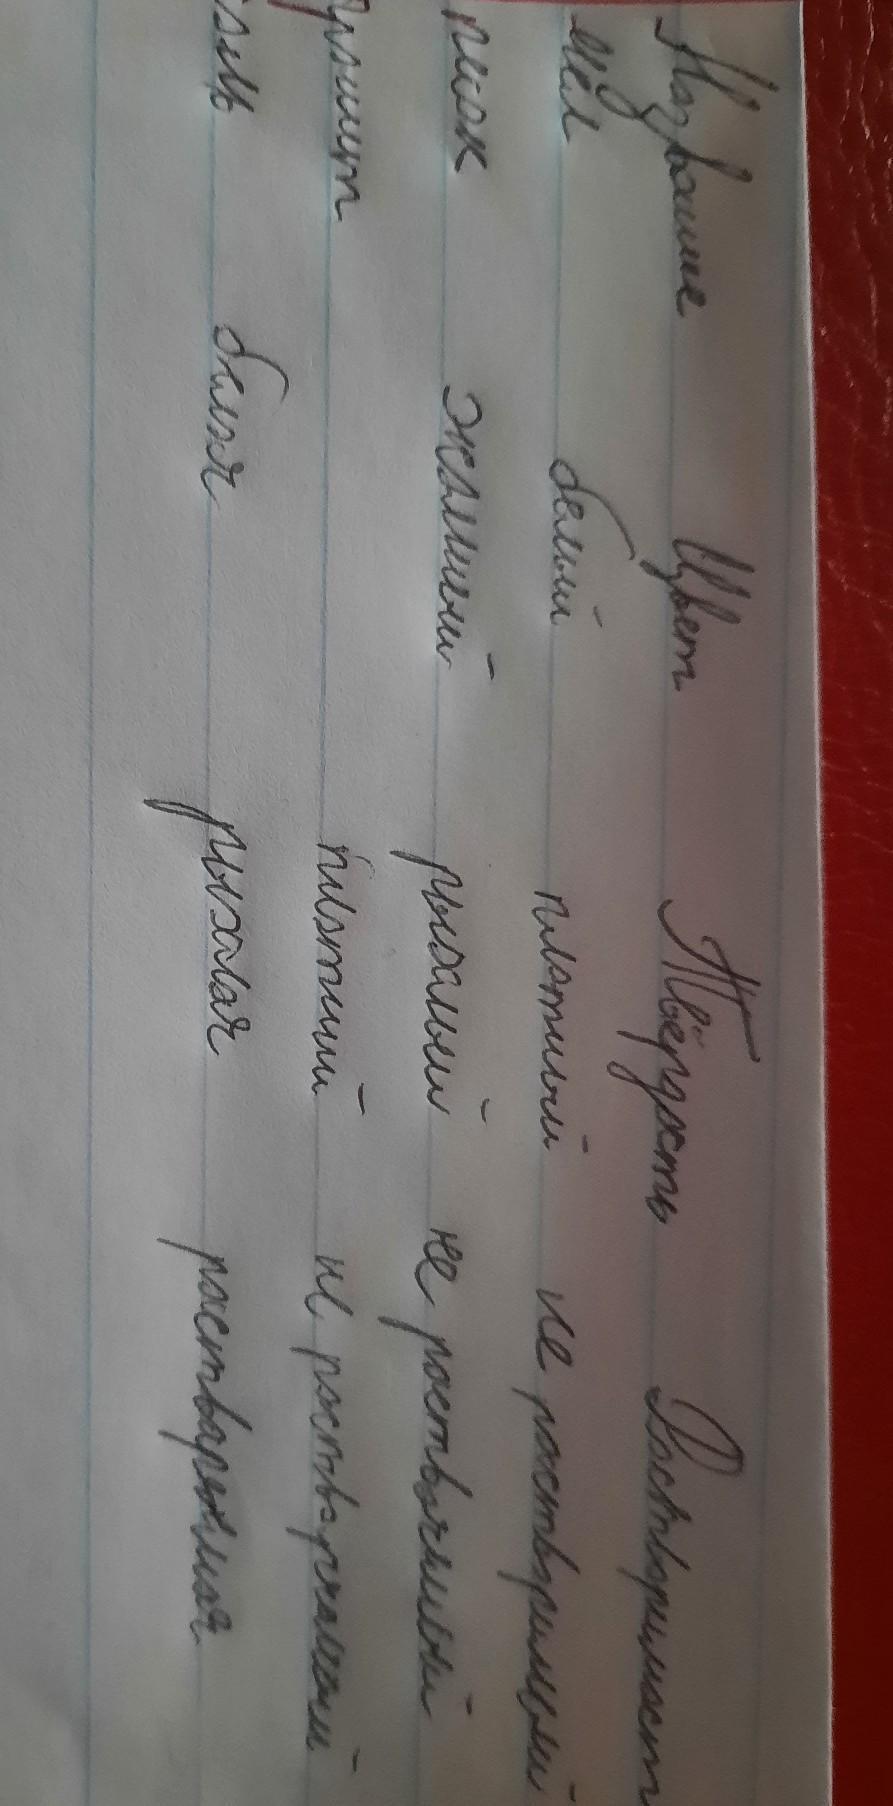 Название Цвет Твёрдость Растворимост
мел белый плотный не растворимый
писок жолтый рыхлый не растворимый
гранит плотный не растваримый
соль белая рыхлая растваримая